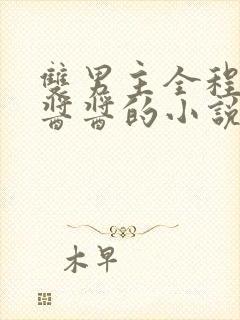 雙男主全程
醬醬的小說
木早